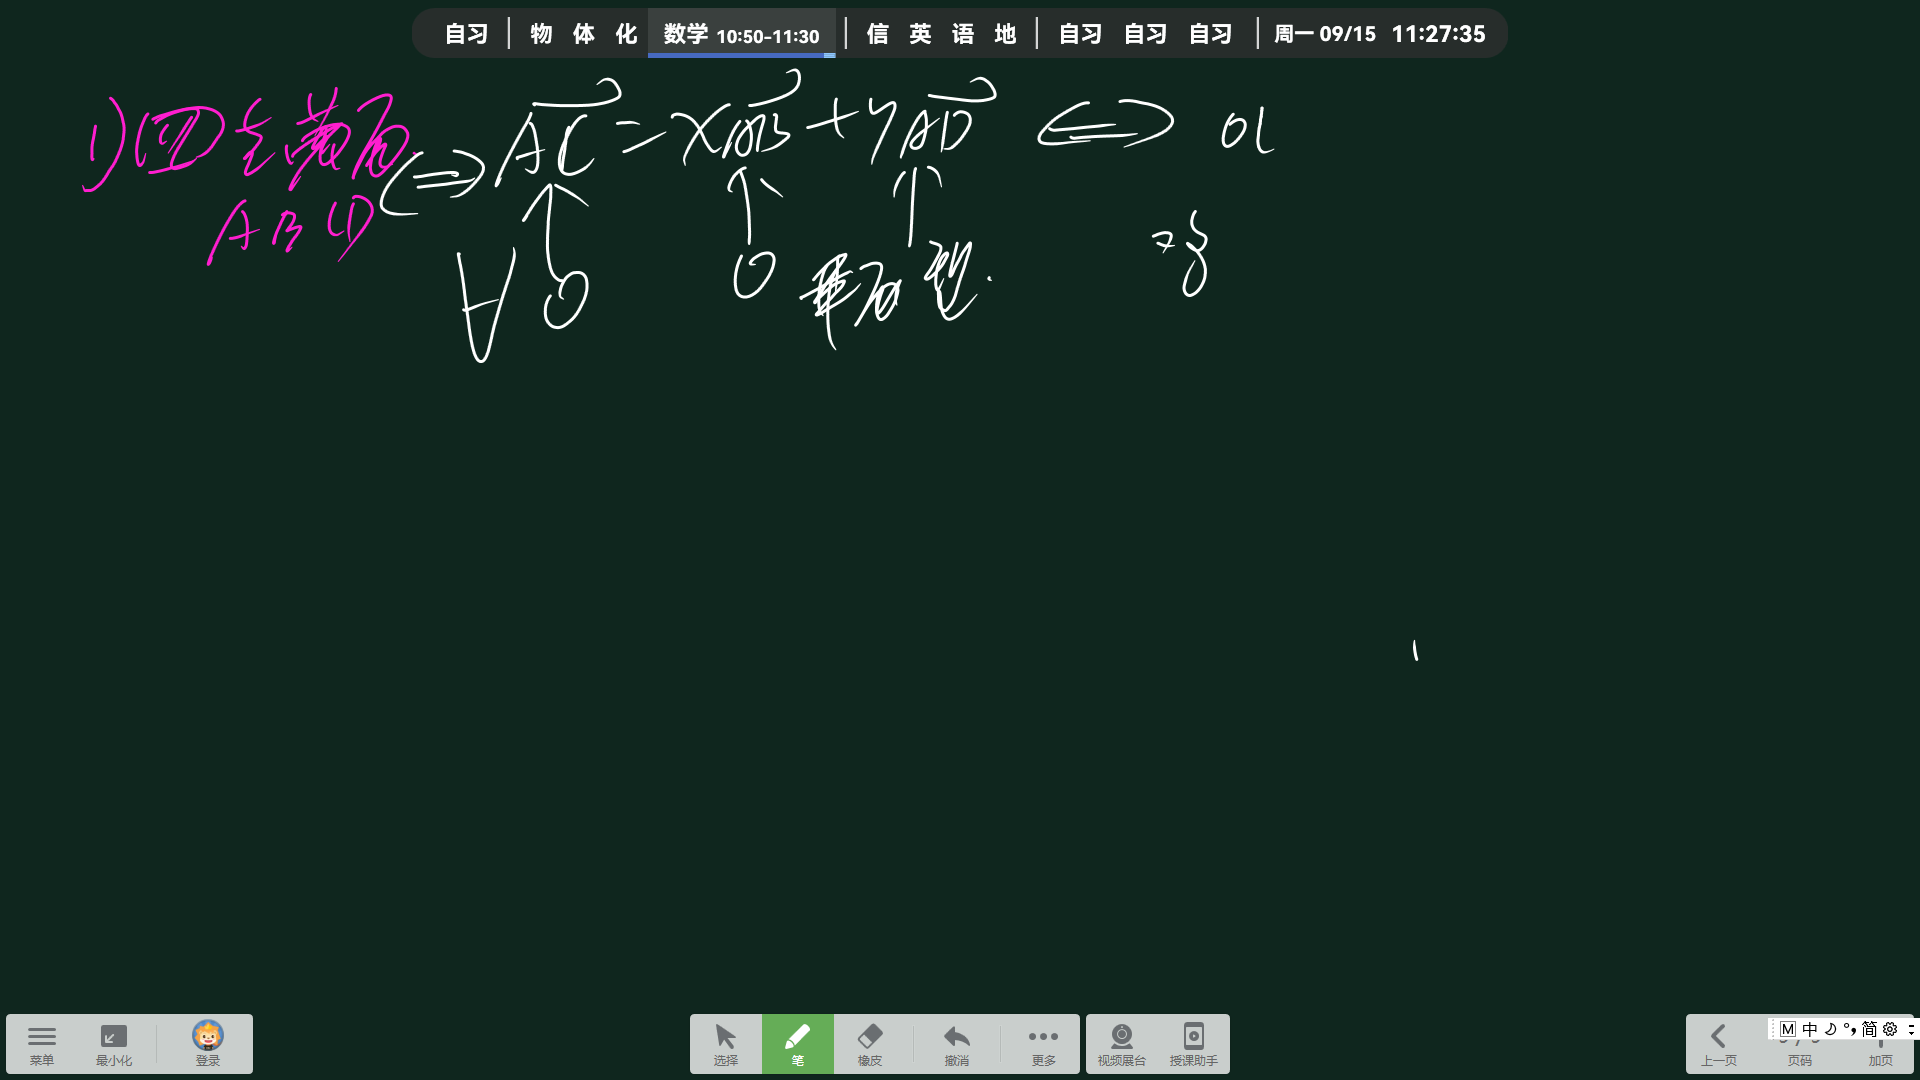 自习 | 物 体 化 数学 10:50-11:30 | 信 英 语 地 | 自习 自习 自习 | 周一 09/15 11:27:35
1) 四点共面 ⇔ AC = xAB + yAD ⇔
ABCD
∀ O O
菜单 最小化 登录 选择 笔 橡皮 撤消 更多 视频展台 授课助手 上一页 页码 加页
M 中 简